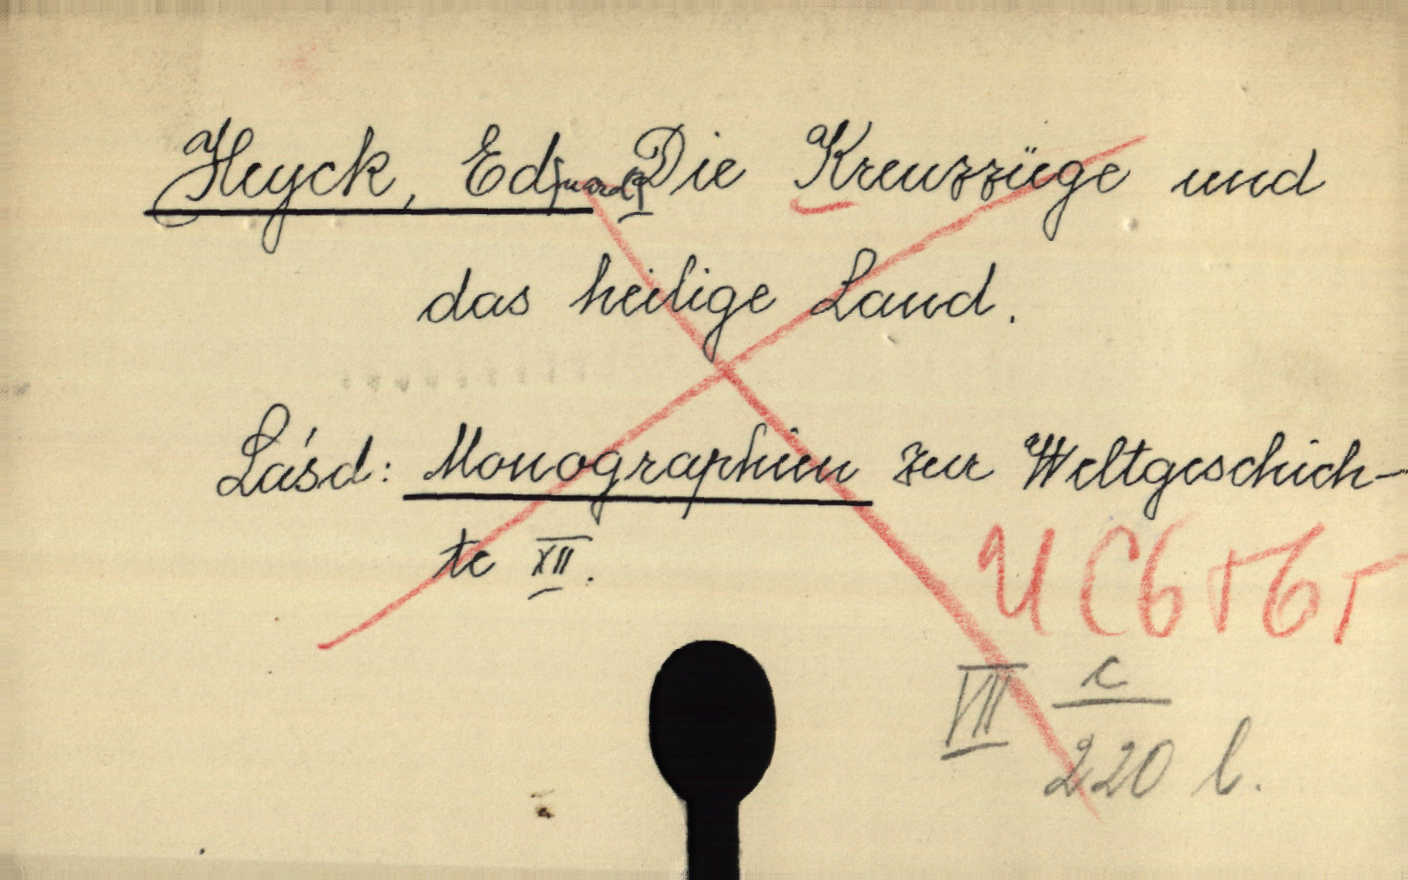 Heyck, Ed[uard]: Die Kreuzzüge und
das heilige Land.
Lásd: Monographien zur Weltgeschich-
te XII.
VII c
220 l.